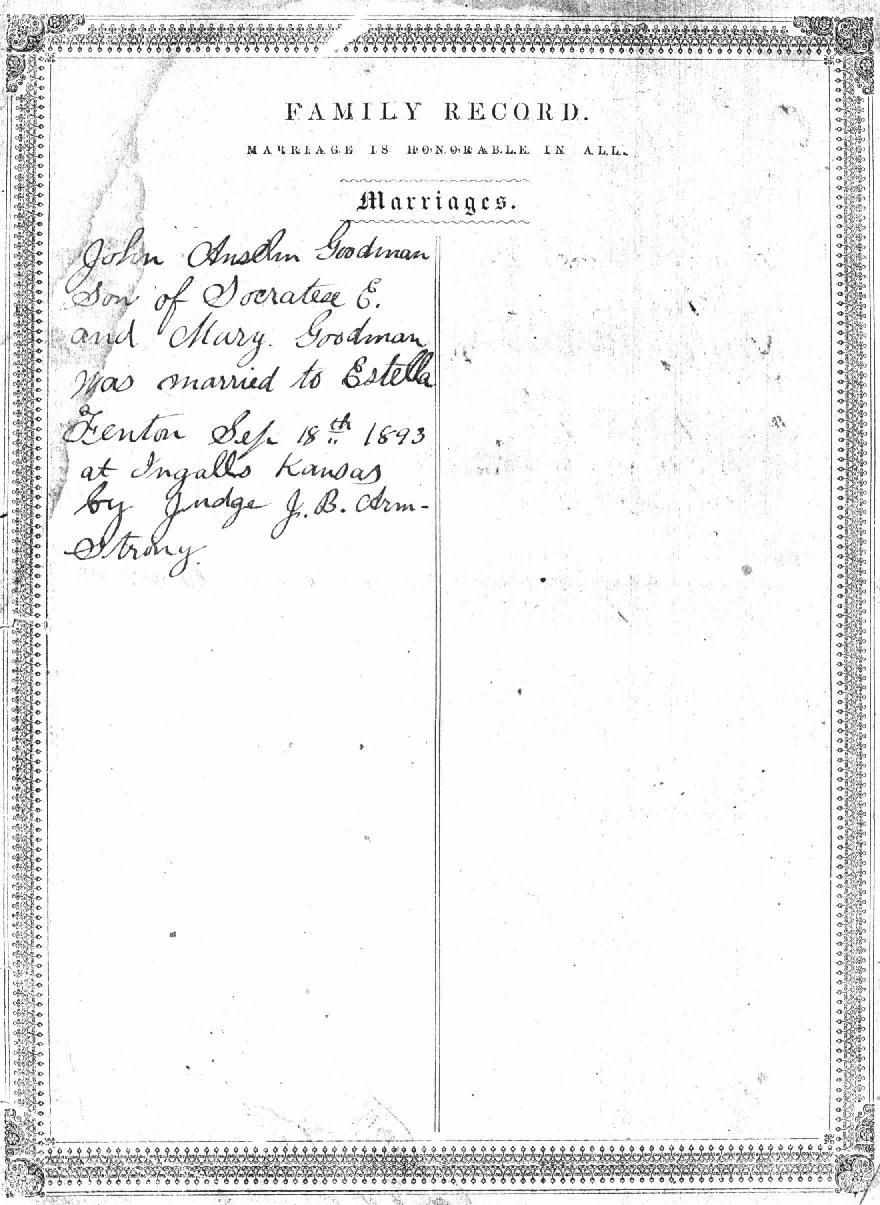 FAMILY RECORD.
MARRIAGE IS HONORABLE IN ALL.
Marriages.
John Anselm Goodman
Son of Socratese E.
and Mary. Goodman
was married to Estella
Fenton Sep 18th 1893
at Ingalls Kansas
by Judge J. B. Arm-
Strong.